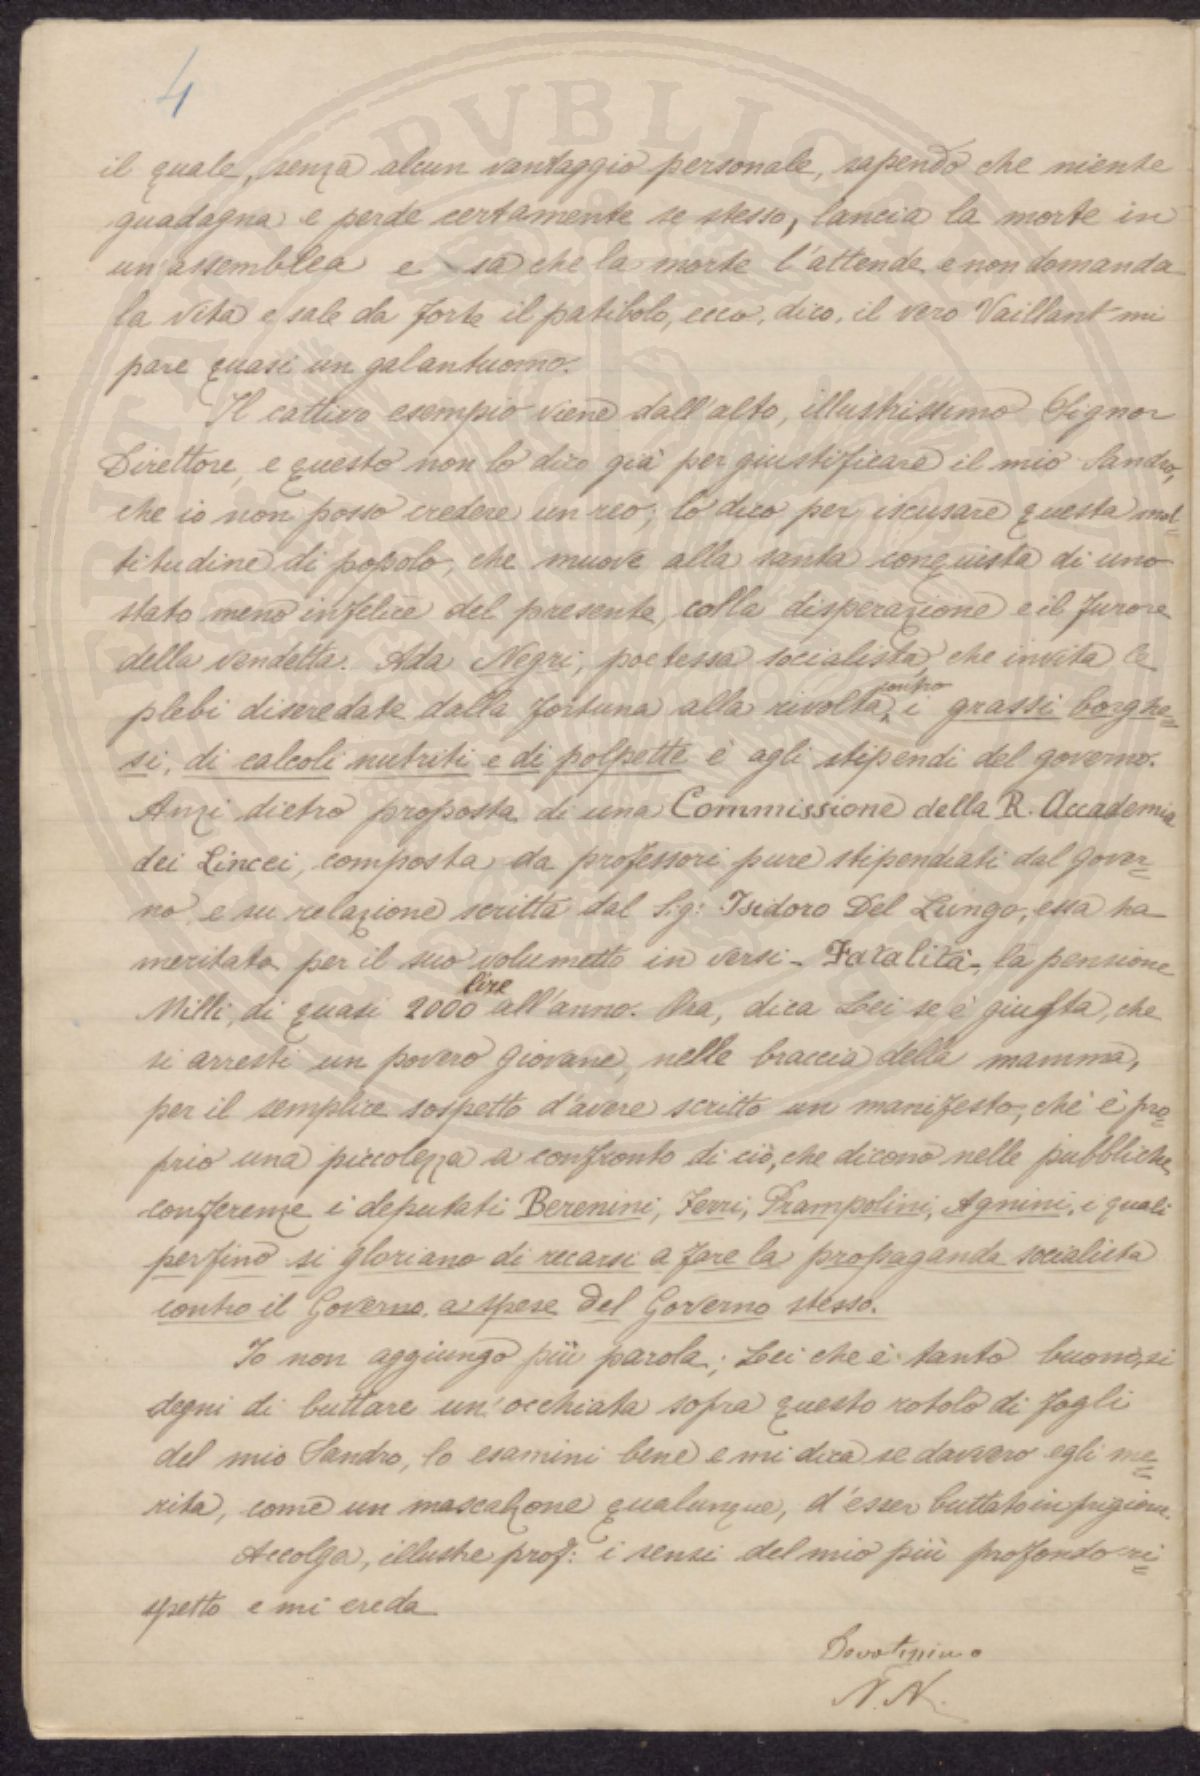 4
il quale, senza alcun vantaggio personale, sapendo che niente
guadagna e perde certamente se stesso, lancia la morte in
un'assemblea e sa che la morte l'attende e non domanda
la vita e sale da forte il patibolo, ecco, dico, il vero Vaillant mi
pare quasi un galantuomo.
Il cattivo esempio viene dall'alto, illustrissimo Signor
Direttore, e questo non lo dico già per giustificare il mio Sandro,
che io non posso credere un reo; lo dico per iscusare questa mol=
titudine di popolo, che muove alla santa conquista di uno
stato meno infelice del presente, colla disperazione e il furore
della vendetta. Ada Negri, poetessa socialista, che invita le
plebi diseredate dalla fortuna alla rivolta, contro i grassi borghe=
si, di calcoli nutriti e di polpette è agli stipendi del governo.
Anzi dietro proposta di una Commissione della R. Accademia
dei Lincei, composta da professori pure stipendiati dal gover=
no, e su relazione scritta dal Sig: Isidoro Del Lungo, essa ha
meritato per il suo volumetto in versi - Fatalità -, la pensione
Milli, di quasi 2000 lire all'anno. Ora, dica Lei se è giusta, che
si arresti un povero giovane, nelle braccia della mamma,
per il semplice sospetto d'avere scritto un manifesto, che è pro=
prio una piccolezza a confronto di ciò, che dicono nelle pubbliche
conferenze i deputati Berenini, Ferri, Prampolini, Agnini, i quali
perfino si gloriano di recarsi a fare la propaganda socialista
contro il Governo, a spese del Governo stesso.
Io non aggiungo più parola; Lei che è tanto buono, si
degni di buttare un'occhiata sopra questo rotolo di fogli
del mio Sandro, lo esamini bene e mi dica se davvero egli me=
rita, come un mascalzone qualunque, d'esser buttato in prigione.
Accolga, illustre prof: i sensi del mio più profondo ri=
spetto e mi creda
Devotissimo
N. N.